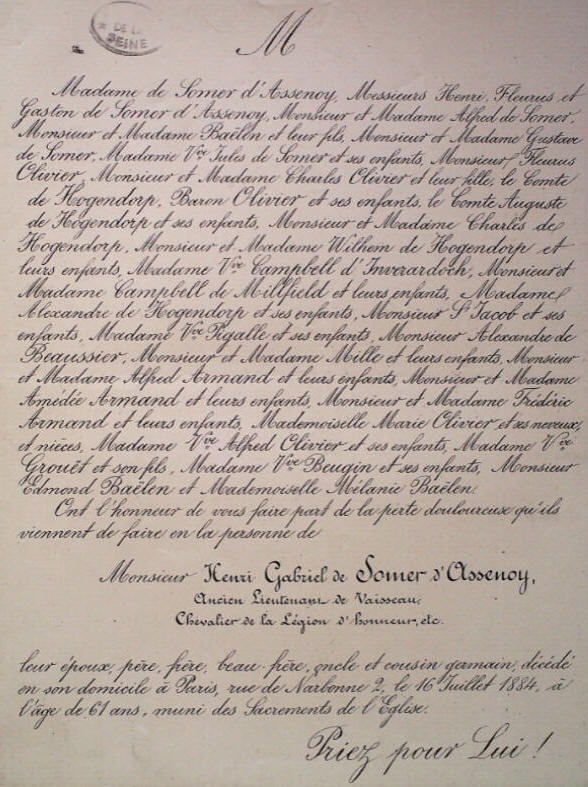 DE LA
SEINE
M
Madame de Somer d'Assenoy, Messieurs Henri, Fleurus et
Gaston de Somer d'Assenoy, Monsieur et Madame Alfred de Somer,
Monsieur et Madame Baëlen et leur fils, Monsieur et Madame Gustave
de Somer, Madame Vve Jules de Somer et ses enfants, Monsieur Fleurus
Olivier, Monsieur et Madame Charles Olivier et leur fille, le Comte
de Hogendorp, Baron Olivier et ses enfants, le Comte Auguste
de Hogendorp et ses enfants, Monsieur et Madame Charles de
Hogendorp, Monsieur et Madame Wilhem de Hogendorp et
leurs enfants, Madame Vve Campbell d'Inverardoch, Monsieur et
Madame Campbell de Millfield et leurs enfants, Madame
Alexandre de Hogendorp et ses enfants, Monsieur St Jacob et ses
enfants, Madame Vve Pigalle et ses enfants, Monsieur Alexandre de
Beaussier, Monsieur et Madame Mille et leurs enfants, Monsieur
et Madame Alfred Armand et leurs enfants, Monsieur et Madame
Amedée Armand et leurs enfants, Monsieur et Madame Frédéric
Armand et leurs enfants, Mademoiselle Marie Olivier et ses neveux
et nièces, Madame Vve Alfred Olivier et ses enfants, Madame Vve
Grouët et son fils, Madame Vve Beugin et ses enfants, Monsieur
Edmond Baëlen et Mademoiselle Mélanie Baëlen.
Ont l'honneur de vous faire part de la perte douloureuse qu'ils
viennent de faire en la personne de
Monsieur Henri Gabriel de Somer d'Assenoy,
Ancien Lieutenant de Vaisseau,
Chevalier de la Légion d'honneur, etc.
leur époux, père, frère, beau-frère, oncle et cousin germain, décédé
en son domicile à Paris, rue de Narbonne 2, le 16 Juillet 1884, à
l'âge de 61 ans, muni des Sacrements de l'Eglise.
Priez pour Lui !